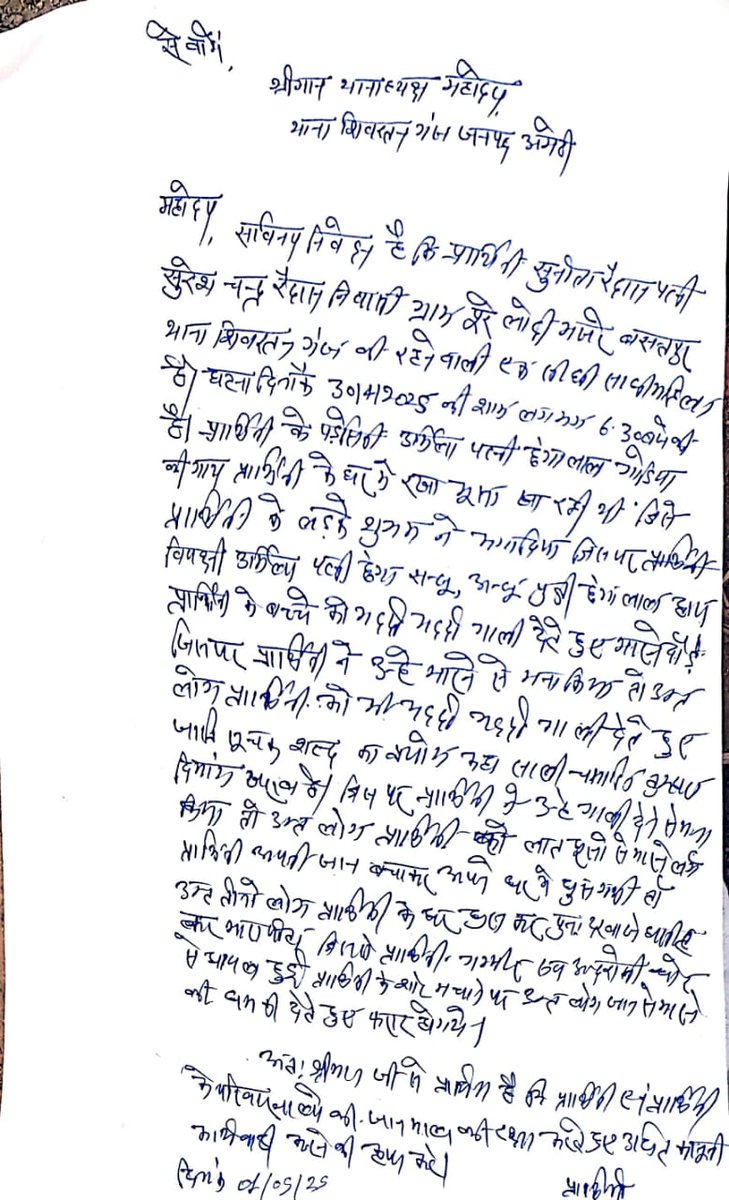 सेवामें,
श्रीमान थानाध्यक्ष महोदय,
थाना शिवरतन गंज जनपद अमेठी
महोदय,
सविनय निवेदन है कि प्रार्थिनी सुनीता रैदास पत्नी
सुरेश चन्द्र रैदास निवासी ग्राम शेर लोदी मजरे बसन्तपुर
थाना शिवरतन गंज की रहने वाली एक सीधी साधी महिला
है। घटना दिनांक 30/4/2025 की शाम लगभग 6.30 बजे की
है। प्रार्थिनी के पड़ोसिनी उर्मिला पत्नी होगालाल
की गाय प्रार्थिनी के घर मे रखा भूसा खा रही थी जिसे
प्रार्थिनी के लड़के शुभम ने भगा दिया जिसपर प्रार्थिनी
विपक्षी उर्मिला पत्नी पुत्री होगालाल द्वारा
प्रार्थिनी के बच्चे को भद्दी भद्दी गाली देते हुए मारने दौड़े
जिसपर प्रार्थिनी ने उन्हे मारने से मना किया तो उक्त
लोग प्रार्थिनी को भी भद्दी भद्दी गाली देते हुए
जाति सूचक शब्द का प्रयोग कहा साली चमारिन तुम्हारा
दिमाग खराब है। जिस पर प्रार्थिनी ने उन्हे गाली देने से मना
किया तो उक्त लोग प्रार्थिनी को लात घूसो से मारने लगे
प्रार्थिनी अपनी जान बचाकर अपने घर मे घुस गयी तो
उक्त तीनो लोग प्रार्थिनी के घर घुस कर पुनः
कर मारा पीटा जिससे प्रार्थिनी गम्भीर एवं अन्दरोनी चोट
से घायल हुई प्रार्थिनी के शोर मचाने पर उक्त लोग जान से मारने
की धमकी देते हुए फरार हो गये।
अतः श्रीमान जी से प्रार्थना है कि प्रार्थिनी एवं प्रार्थिनी
के परिवार वालो की जान माल की रक्षा करते हुए उचित कानूनी
कार्यवाही करने की कृपा करे।
दिनांक 01/05/25 प्रार्थिनी